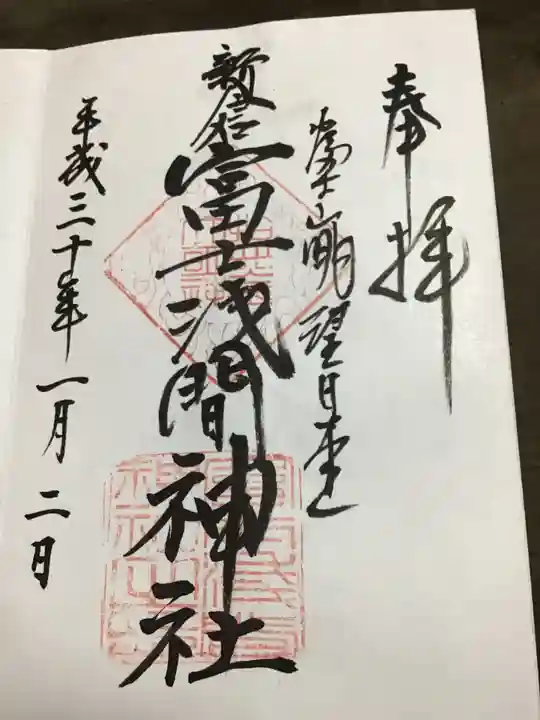 奉拝
富士山眺望日本
新倉富士浅間神社
平成三十年一月二日